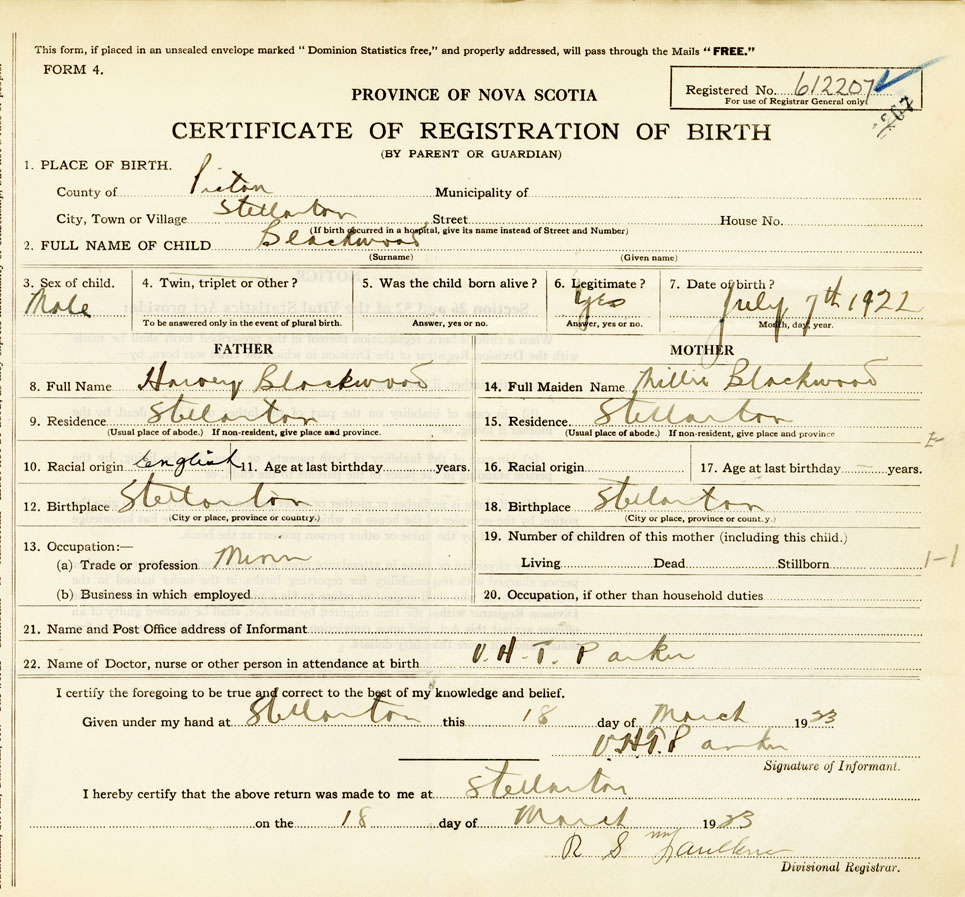 This form, if placed in an unsealed envelope marked " Dominion Statistics free," and properly addressed, will pass through the Mails " FREE."
FORM 4.
Registered No. 612207
For use of Registrar General only
207
PROVINCE OF NOVA SCOTIA
CERTIFICATE OF REGISTRATION OF BIRTH
(BY PARENT OR GUARDIAN)
1. PLACE OF BIRTH.
County of Pictou Municipality of
City, Town or Village Stellarton Street House No.
(If birth occurred in a hospital, give its name instead of Street and Number)
2. FULL NAME OF CHILD Blackwood
(Surname) (Given name)
3. Sex of child. 4. Twin, triplet or other? 5. Was the child born alive? 6. Legitimate? 7. Date of birth?
Male Yes July 7th 1922
To be answered only in the event of plural birth. Answer, yes or no. Answer, yes or no. Month, day, year.
FATHER MOTHER
8. Full Name Harvey Blackwood 14. Full Maiden Name Millie Blackwood
9. Residence Stellarton 15. Residence Stellarton
(Usual place of abode.) If non-resident, give place and province. (Usual place of abode.) If non-resident, give place and province
10. Racial origin English 11. Age at last birthday years. 16. Racial origin 17. Age at last birthday years.
12. Birthplace Stellarton 18. Birthplace Stellarton
(City or place, province or country.) (City or place, province or country.)
13. Occupation:— 19. Number of children of this mother (including this child.)
(a) Trade or profession Miner Living Dead Stillborn 1-1
(b) Business in which employed 20. Occupation, if other than household duties
21. Name and Post Office address of Informant
22. Name of Doctor, nurse or other person in attendance at birth V.H.T. Parker
I certify the foregoing to be true and correct to the best of my knowledge and belief.
Given under my hand at Stellarton this 18 day of March 1923
V.H.T. Parker
Signature of Informant.
I hereby certify that the above return was made to me at Stellarton
on the 18 day of March 1923
R S Faulkner
Divisional Registrar.